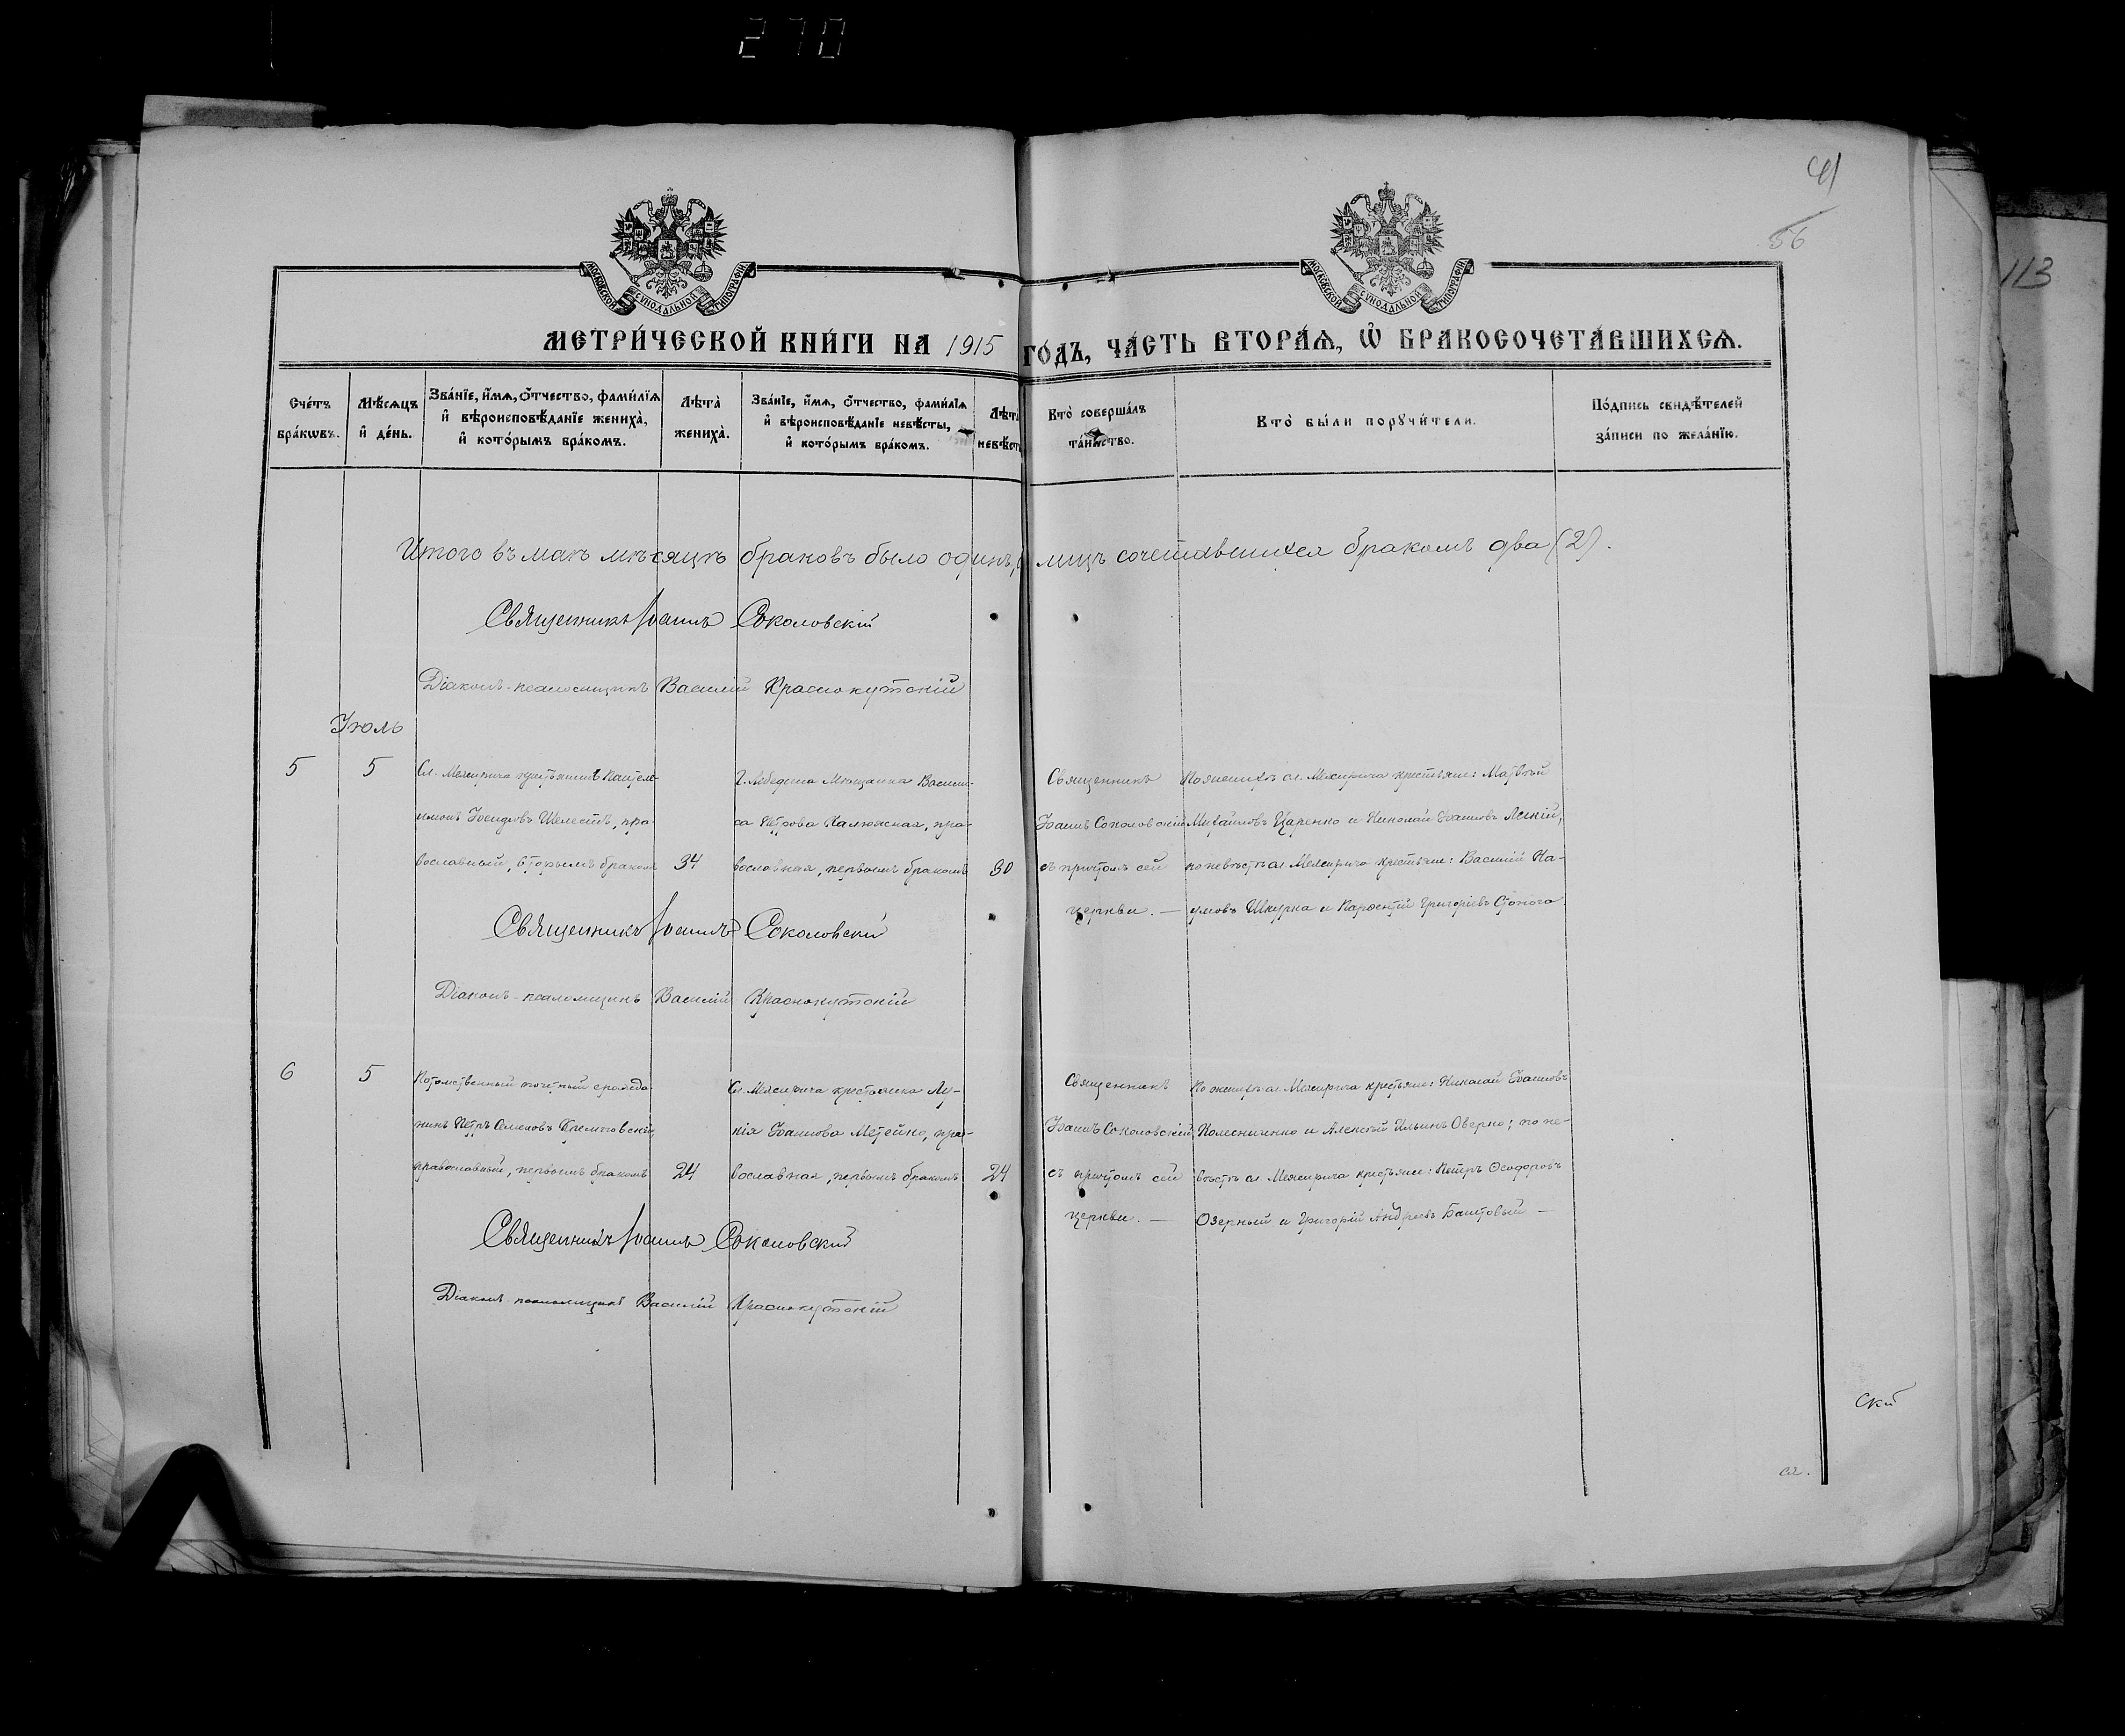 270
41
56
113
МОСКОВСКОЙ СУНОДАЛЬНОЙ ТИПОГРАФІИ
МОСКОВСКОЙ СУНОДАЛЬНОЙ ТИПОГРАФІИ
МЕТРИ́ЧЕСКОЙ КНИ́ГИ НА 1915 ГО́ДЪ, ЧА́СТЬ ВТОРА́Ѧ, Ѽ БРАКОСОЧЕТА́ВШИХСѦ.
Сче́тъ
бра́кѡвъ.
Мѣ́сѧцъ
и҆ де́нь.
Зва́нїе, и҆́мѧ, ѻ҆́тчество, фами́лїѧ
и҆ вѣроисповѣ́данїе жениха̀,
и҆ кото́рымъ бра́комъ.
Лѣта̀
жениха̀.
Зва́нїе, и҆́мѧ, ѻ҆́тчество, фами́лїѧ
и҆ вѣроисповѣ́данїе невѣ́сты,
и҆ кото́рымъ бра́комъ.
Лѣта̀
невѣ́сты
Кто̀ соверша́лъ
та́инство.
Кто̀ бы́ли порꙋчи́тели.
По́дпись свидѣ́телей
за́писи по жела́нїю.
Итого въ маѣ мѣсяцѣ браковъ было одинъ, лицъ сочетавшихся бракомъ два (2).
Священникъ Іоаннъ Соколовскій
Діаконъ-псаломщикъ Василій Краснокутскій
Іюль
5
5
Сл. Межирича крестьянинъ Пантеле-
имонъ Іосифовъ Шелестъ, пра-
вославный, вторымъ бракомъ
34
Г. Лебедина Мѣщанка Васили-
са Петрова Калюжная, пра-
вославная, первымъ бракомъ
30
Священникъ
Іоаннъ Соколовскій
съ причтомъ сей
церкви. —
По женихѣ сл. Межирича крестьяне: Матвѣй
Михайловъ Царенко и Николай Іоанновъ Лскій,
по невѣстѣ сл. Межирича крестьяне: Василій На-
умовъ Шкурка и Григоріевъ
Священникъ Іоаннъ Соколовскій
Діаконъ-псаломщикъ Василій Краснокутскій
6
5
Потомственный почетный гражда-
нинъ Петръ
православный, первымъ бракомъ
24
Сл. Межирича крестьянка Лу-
кія Іоаннова Метейко, пра-
вославная, первымъ бракомъ
24
Священникъ
Іоаннъ Соколовскій
съ причтомъ сей
церкви. —
По женихѣ сл. Межирича крестьяне: Николай Іоанновъ
Колесниченко и Алексѣй Ильинъ Оверко; по не-
вѣстѣ сл. Межирича крестьяне: Петръ Ѳеодоровъ
Озерный и Григорій Андреевъ Баштовый —
Священникъ Іоаннъ Соколовскій
Діаконъ псаломщикъ Василій Краснокутскій
скій